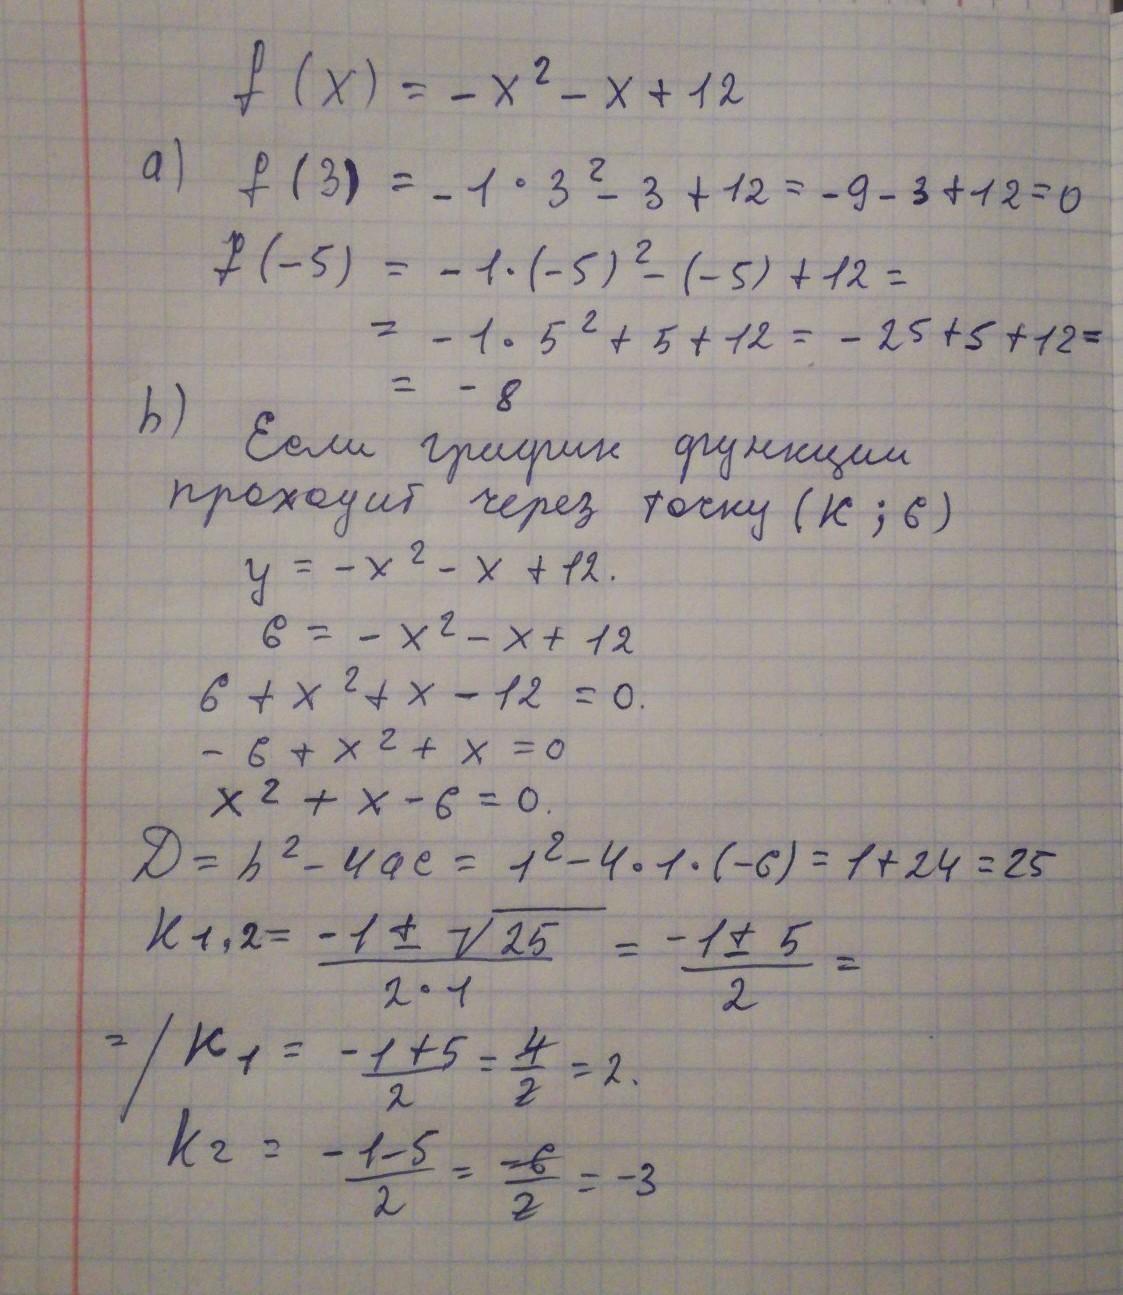 f (x) = -x² - x + 12
a) f (3) = -1 · 3² - 3 + 12 = -9 - 3 + 12 = 0
f (-5) = -1 · (-5)² - (-5) + 12 =
= -1 · 5² + 5 + 12 = -25 + 5 + 12 =
= -8
b) Если график функции
проходит через точку (к ; 6)
y = -x² - x + 12.
6 = -x² - x + 12
6 + x² + x - 12 = 0.
-6 + x² + x = 0
x² + x - 6 = 0.
D = b² - 4ac = 1² - 4 · 1 · (-6) = 1 + 24 = 25
К1,2 = (-1 ± √25)/(2 · 1) = (-1 ± 5)/2 =
= / К1 = (-1 + 5)/2 = 4/2 = 2.
К2 = (-1 - 5)/2 = -6/2 = -3